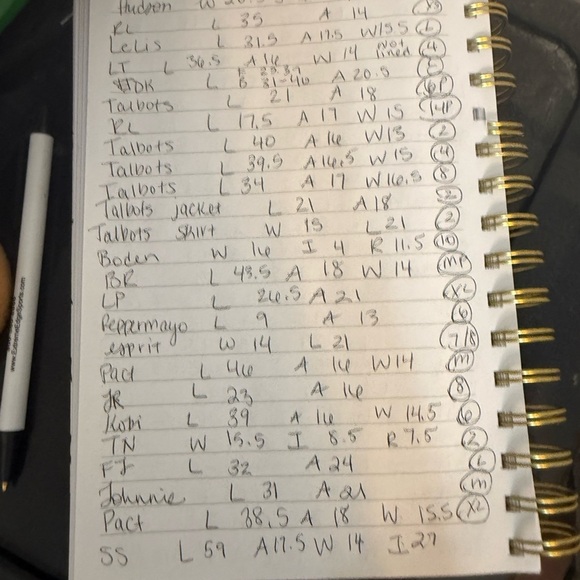 Hudson W
RL L 35 A 14 XS
Lelis L 31.5 A 17.5 W15.5 L
LT L 36.5 A 16 W 14 not lined 4
L B 31-40 A 20.5
Talbots L 21 A 18 6P
RL L 17.5 A 17 W 15 14P
Talbots L 40 A 16 W 13 2
Talbots L 39.5 A 16.5 W 15 4
Talbots L 34 A 17 W 16.5 8
Talbots jacket L 21 A 18 2
Talbots skirt W 15 L 21 2
Boden W 16 I 4 R 11.5 10
BR L 43.5 A 18 W 14 MP
LP L 26.5 A 21 XL
Peppermayo L 9 A 13 6
esprit W 14 L 21 7/8
Pact L 46 A 16 W 14 M
JR L 23 A 16 8
Kobi L 39 A 16 W 14.5 6
TN W 15.5 I 8.5 R 7.5 2
FJ L 32 A 24 L
Johnnie L 31 A 21 M
Pact L 38.5 A 18 W 15.5 XL
SS L 59 A 17.5 W 14 I 27
www.ExtremeEdgeSports.com